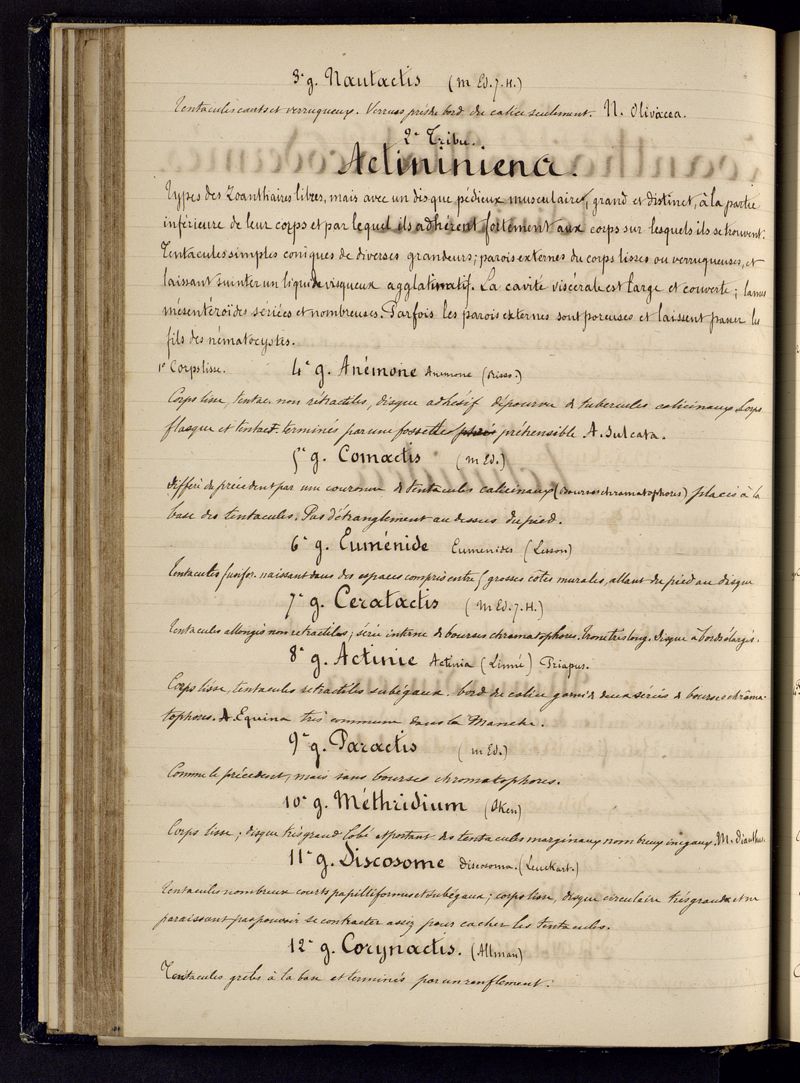 3e g. Nautactis (M Ed. J. H.)
Tentacules courts et verruqueux. Verrues près du bord du calice seulement. N. Olivacea.
2e Tribu.
Actininiena.
Types des Zoanthaires libres, mais avec un disque pédieux musculaire, grand et distinct, à la partie
inférieure de leur corps et par lequel ils adhèrent fortement aux corps sur lesquels ils se trouvent.
Tentacules simples coniques de diverses grandeurs; parois externes du corps lisses ou verruqueuses, et
laissant suinter un liquide visqueux agglatimatif. La cavité viscérale est large et couverte; lames
mésentéroïdes sériées et nombreuses. Parfois les parois externes sont poreuses et laissent passer les
fils des nématocystes.
1e Corps lisse. 4e g. Anémone Anemone (Risso.)
Corps lisse, tentac. non rétractiles, disque adhésif dépourvu de tubercules calicinaux. Corps
flasque et tentac. terminés par une fossette préhensible A. Sulcata.
5e g. Comactis (M Ed.)
Diffère du précédent par une couronne de tentacules calicinaux (bourses chromatophores) placés à la
base des tentacules. Pas d'étranglement au dessus du pied.
6e g. Euménide Eumenides (Lesson)
Tentacules fusifor. naissant dans des espaces compris entre 5 grosses côtes murales, allant du pied au disque
7e g. Ceratactis (M Ed. J. H.)
Tentacules allongés non retractiles; série interne de bourses chromatophores. Tronc très long. Disque à bords élargis.
8e g. Actinie Actinia (Linné) Priapus.
Corps lisse, tentacules retractiles subégaux. bord du calice garni de deux séries de bourses chrôma-
tophores. A. Equina très commune dans la Manche.
9e g. Paractis (M Ed.)
Comme le précédent, mais sans bourses chromatophores.
10e g. Méthridium (Oken)
Corps lisse; disque très grand lobé et portant des tentacules marginaux nombreux inégaux. M. dianthus.
11e g. Discosome Discosoma. (Leuckart.)
Tentacules nombreux courts papilliformes et subégaux; corps lisse, disque circulaire très grand et ne
paraissant pas pouvoir se contracter assez pour cacher les tentacules.
12e g. Corynactis. (Allman)
Tentacules grêles à la base et terminés par un renflement.